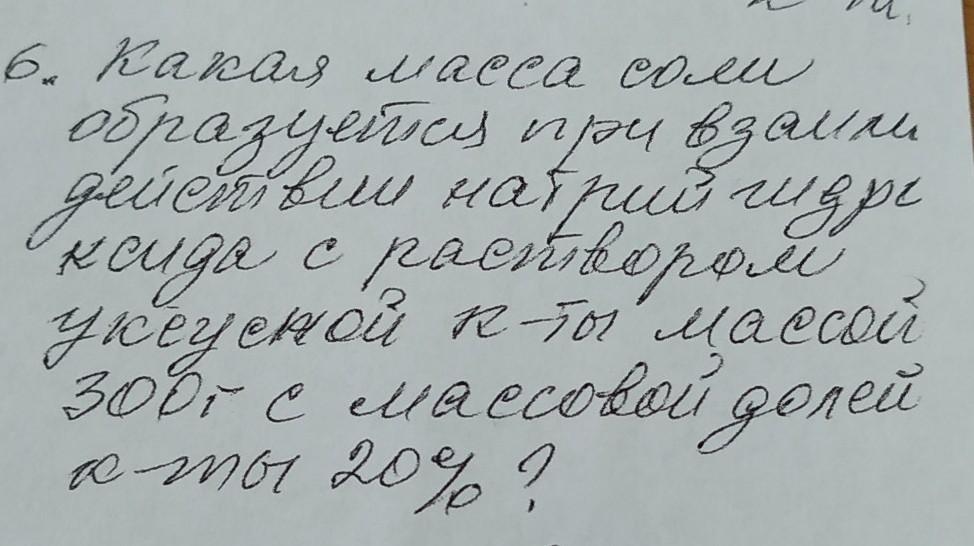 6. Какая масса соли
образуется при взаимо
действии натрий гидро
ксида с раствором
уксусной к-ты массой
300г с массовой долей
к-ты 20% ?